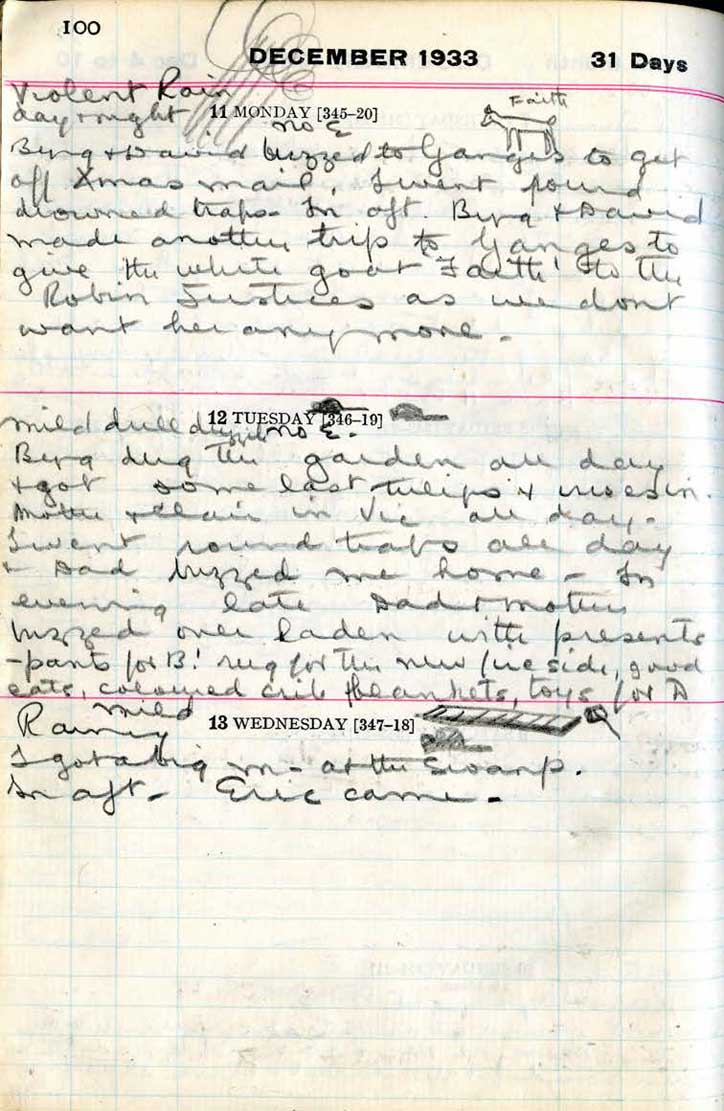 100
DECEMBER 1933 31 Days
Violent Rain
day & night 11 MONDAY [345–20] Faith
no E
Byng & David buzzed to Ganges to get
off Xmas mail, I went round
drowned traps. In aft. Byng & David
made another trip to Ganges to
give the white goat "Faith' to the
Robin Justices as we dont
want her any more.
mild dull 12 TUESDAY [346–19]
no E.
Byng dug the garden all day
& got some last tulips & in.
Mother & in Vic all day.
I went round traps all day
& Dad buzzed me home – In
evening late Dad & mother
buzzed over laden with presents
– pants for B! rug for the new fireside, good
eats, coloured crib blankets, toys for D
mild
Rainy 13 WEDNESDAY [347–18]
I got a big m – at the Swamp.
In aft – Eric came –